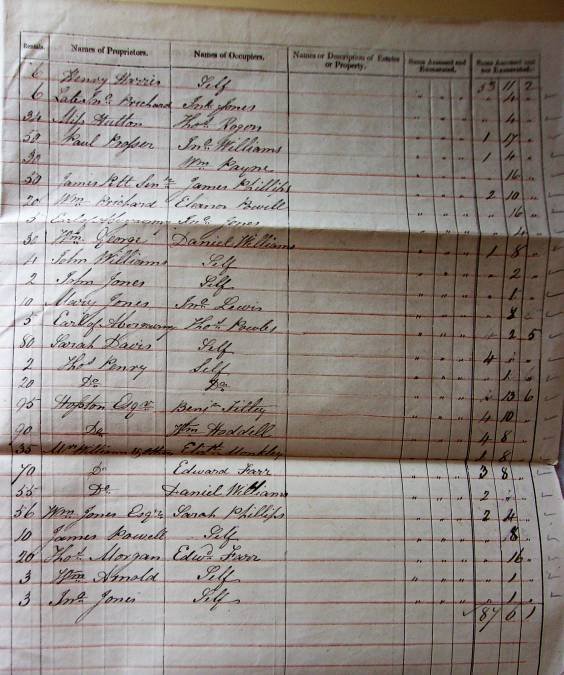 Rentals. Names of Proprietors. Names of Occupiers. Names or Description of Estates or Property. Sums Assessed and Exonerated. Sums Assessed and not Exonerated.
6 Henry Harris Self 53 11 2
6 Late Jno. Prichard Jno. Jones " 4 "
34 Miss Hutton Thos. Rogers " 4 "
50 Paul Prosser Jno. Williams 1 17 "
30 Wm. Payne 1 4 "
50 James Pitt Senr. James Phillips " 16 "
20 Wm. Prichard Eleanor Powell 2 10 "
5 Earl of Abergavenny Jno. Jones " 16 "
30 Wm. George Daniel Williams " 4 "
4 John Williams Self 1 8 "
2 John Jones Self " 2 "
10 Mary Jones Jno. Lewis " 1 "
5 Earl of Abergavenny Thos. Powles " 8 "
80 Sarah Davis Self " 2 5
2 Thos. Penry Self 4 " "
20 Do. Do. " 1 6
95 Hopton Esqr. Benjn. Tilley " 13 6
90 Do. Wm. Hoddell 4 10 "
35 Mr. William Elizth. 4 8 "
70 Do. Edward Farr 1 8
55 Do. Daniel Williams 3 8 "
56 Wm. Jones Esqr. Sarah Phillips 2 "
10 James Powell Self 2 4 "
20 Thos. Morgan Edwd. Farr " 8
3 Wm. Arnold Self " 16
3 Jno. Jones Self " 1 "
" 1 "
87 6 1